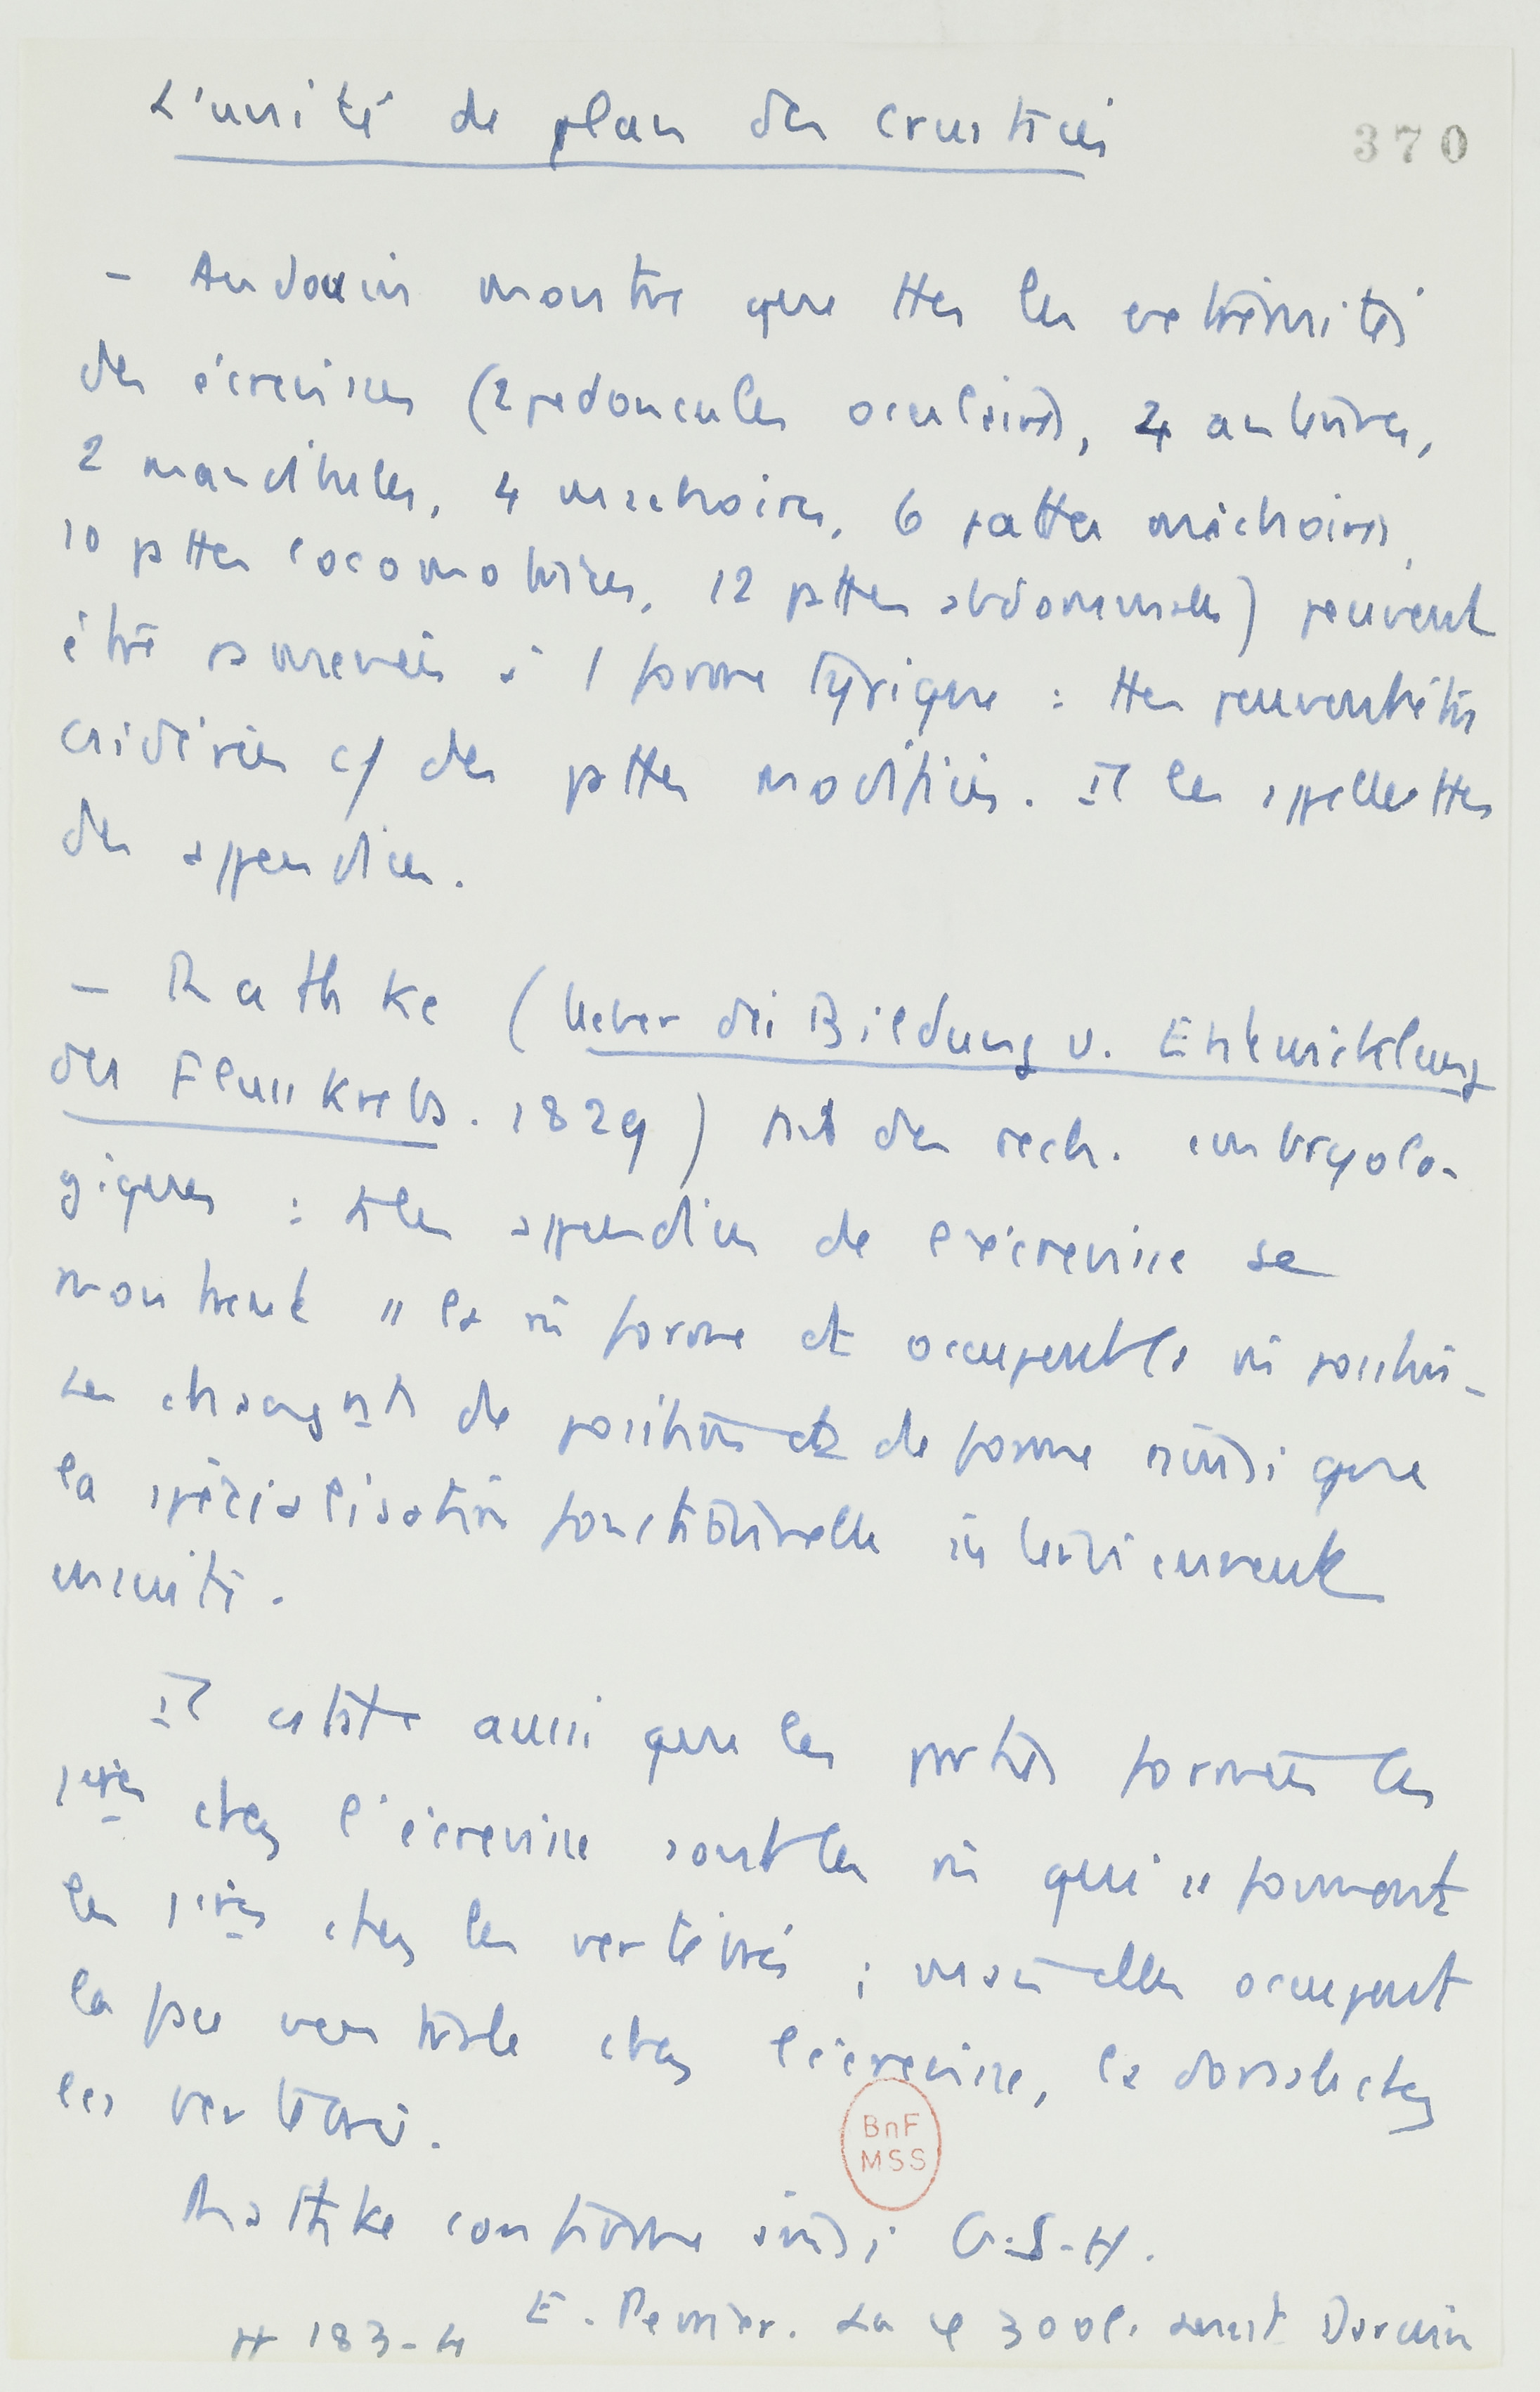 L'unité de plan des crustacés
370
- Audouin montre que ttes les extrémités
des écrevisses (2 pedoncules oculaires, 4 antennes,
2 mandibules, 4 machoires, 6 pattes mâchoires,
10 pttes locomotrices, 12 pttes abdominales) peuvent
être ramenées à 1 forme typique : ttes peuvent être
csidérées c/ des pttes modifiées. Il les appelle ttes
des appendices.
- Rathke (Ueber die Bildung u. Entwicklung
des Flusskrebs. 1829) fait des rech. embryolo-
giques : ts les appendices de l'écrevisse se
montrent "ls la m̂ forme et occupent la m̂ position.
Les changnts de position et de forme ainsi que
la spécialisation fonctionnelle interviennent
ensuite.
Il cstate aussi que les parties formées les
1ères chez l'écrevisse sont les m̂ qui se forment
les 1ères chez les vertébrés ; mais elles occupent
la face ventrale chez l'écrevisse, la dorsale chez
les vertébrés.
Rathke confirme ainsi G.S-H.
E. Perrier. La φ zool. avant Darwin
pp 183-4